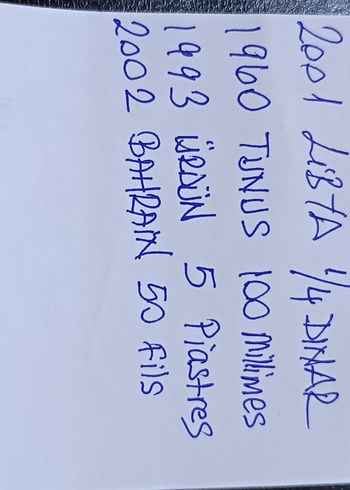 2001 LİBYA 1/4 DINAR
1960 TUNUS 100 millimes
1993 ÜRDÜN 5 Piastres
2002 BAHRAIN 50 fils